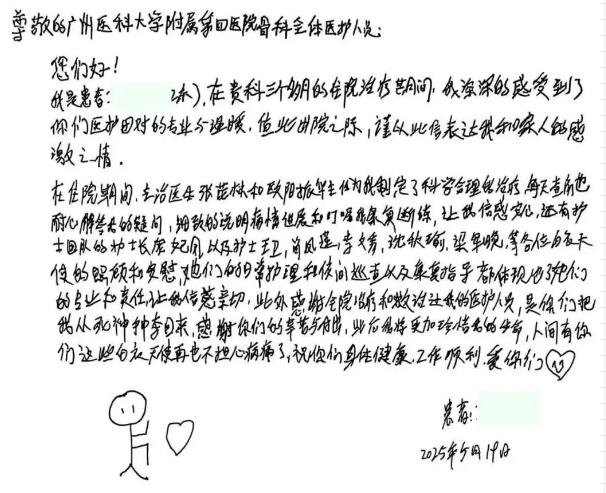 尊敬的广州医科大学附属第四医院骨科全体医护人员:
您们好!
我是患者:        2床),在贵科三个多月的住院治疗期间,我深深的感受到了
你们医护团队的专业与温暖,值此出院之际,谨以此信表达我和家人的感
激之情。
在住院期间,主治医生张 和欧阳振华主任为我制定了科学合理的治疗,每天查房也
耐心解答我的疑问,细致的说明病情进展和叮嘱我康复锻炼,让我倍感安心,还有护
士团队的护士长 以及护士王卫,肖凤莲,李婷,沈秋瑜,梁早晚,等各位白衣天
使的照顾和安慰,她们的日常护理和夜间巡查以及康复指导都体现出了她们
的专业和责任,让我倍感亲切,此外感谢全院治疗和救治过我的医护人员,是你们把
我从死神种夺回来,感谢你们的辛苦与付出,此后我将更加珍惜我的生命,人间有你
们这些白衣天使再也不担心病痛了,祝你们身体健康.工作顺利.爱你们
患者:
2025年5月19日